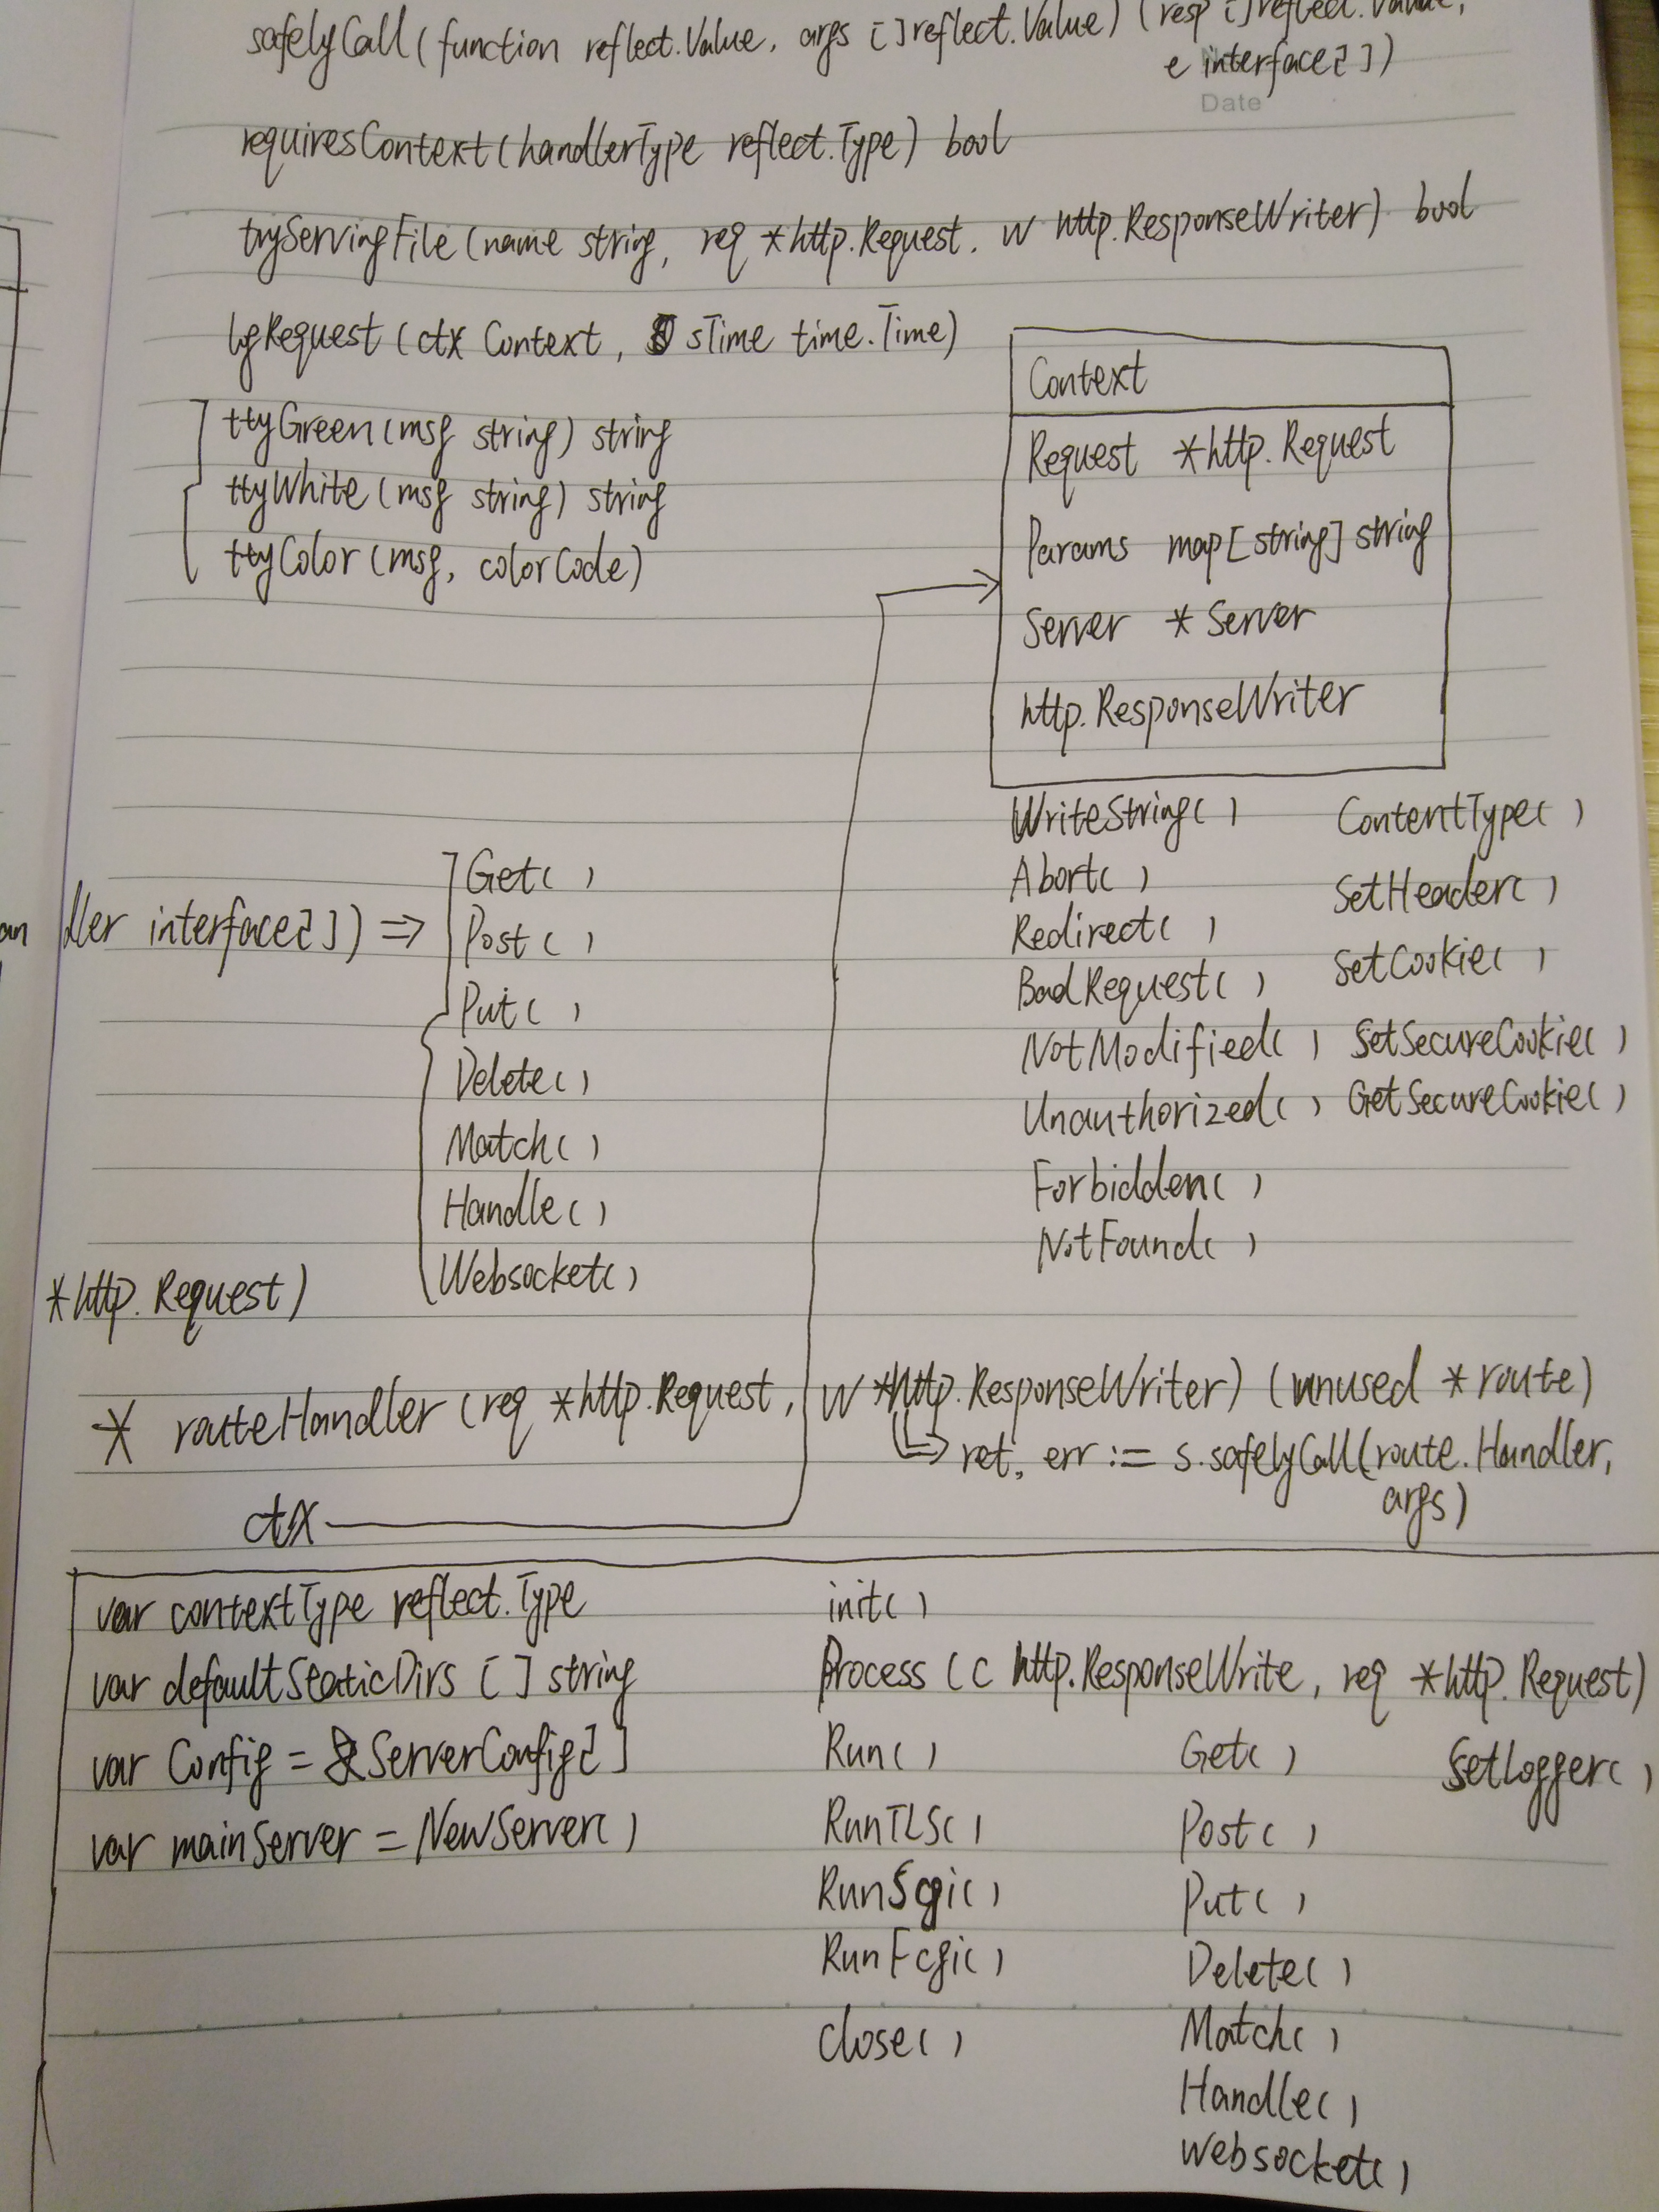 safelyCall(function reflect.Value, args []reflect.Value) (resp []reflect.Value,
e interface{})
Date
requiresContext(handlerType reflect.Type) bool
tryServingFile(name string, req *http.Request, w http.ResponseWriter) bool
lgRequest(ctx Context, sTime time.Time)
ttyGreen(msg string) string
ttyWhite(msg string) string
ttyColor(msg, colorCode)
Context
Request *http.Request
Params map[string]string
Server *Server
http.ResponseWriter
WriteString() ContentType()
Abort() SetHeader()
Redirect()
BadRequest() SetCookie()
NotModified() SetSecureCookie()
Unauthorized() GetSecureCookie()
Forbidden()
NotFound()
an
ller interface{}) =>
Get()
Post()
Put()
Delete()
Match()
Handle()
Websocket()
*http.Request)
* routeHandler(req *http.Request, w *http.ResponseWriter) (unused *route)
ret, err := s.safelyCall(route.Handler,
args)
ctx
var contextType reflect.Type
var defaultStaticDirs []string
var Config = &ServerConfig{}
var mainServer = NewServer()
init()
Process(c http.ResponseWrite, req *http.Request)
Run() Get() SetLogger()
RunTLS() Post()
RunScgi() Put()
RunFcgi() Delete()
Close() Match()
Handle()
Websocket()